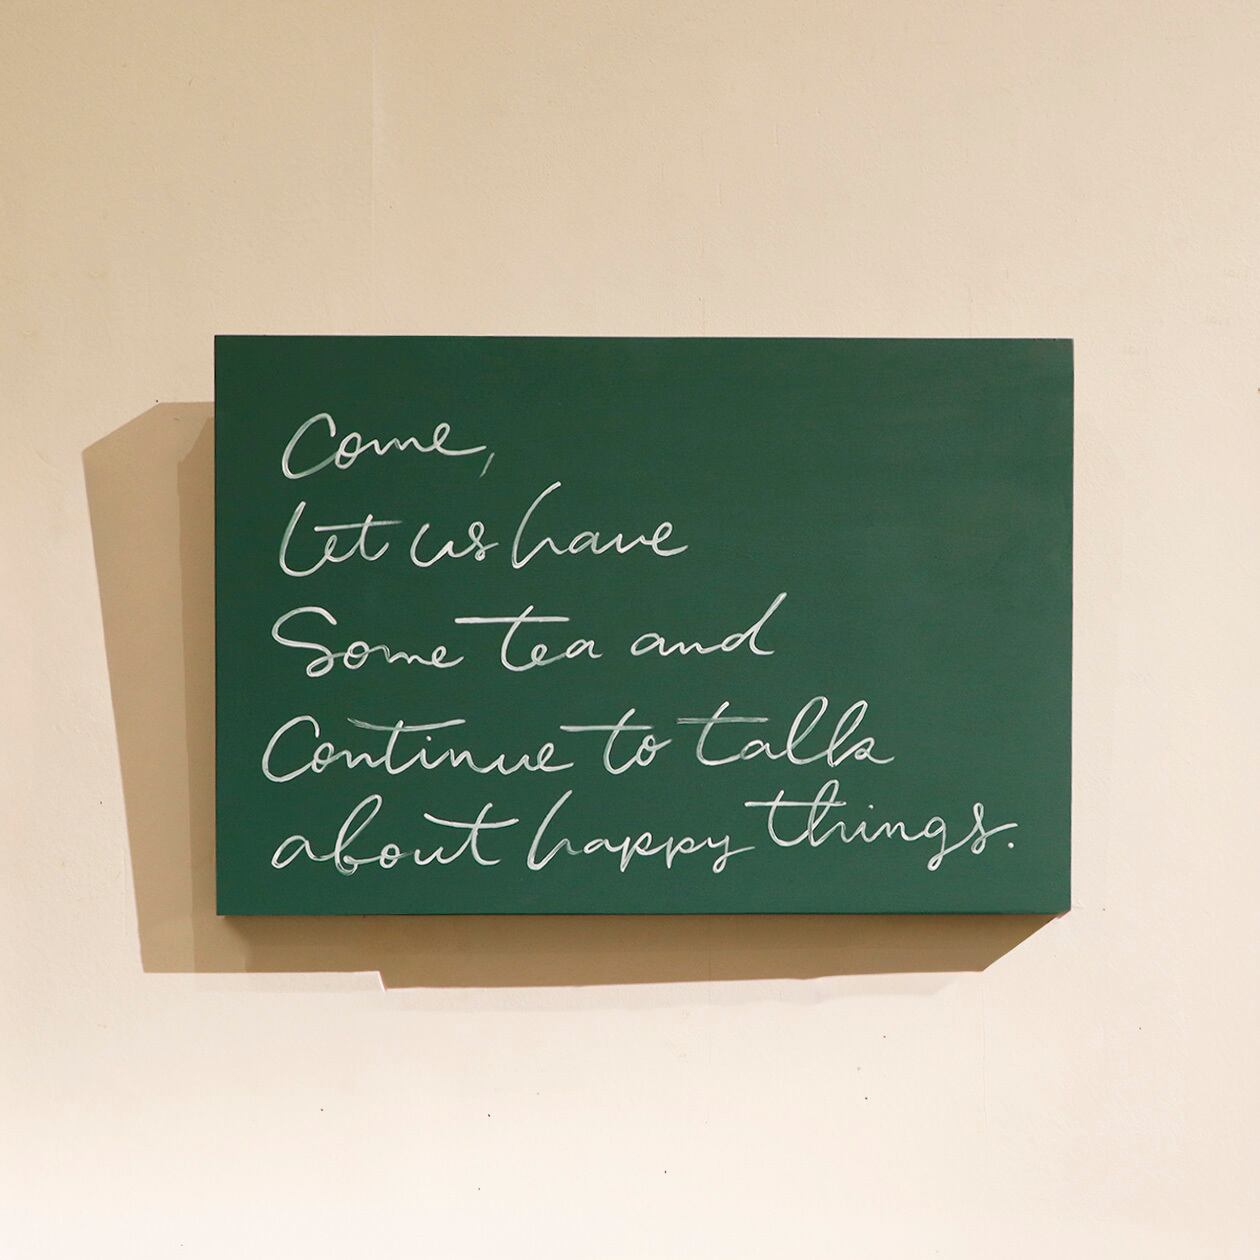 Come,
Let us have
Some tea and
Continue to talk
about happy things.